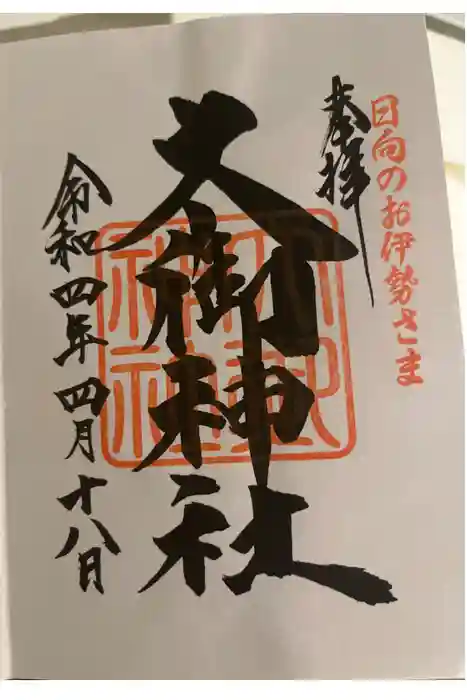 日向のお伊勢さま
奉拝
大御神社
令和四年四月十八日